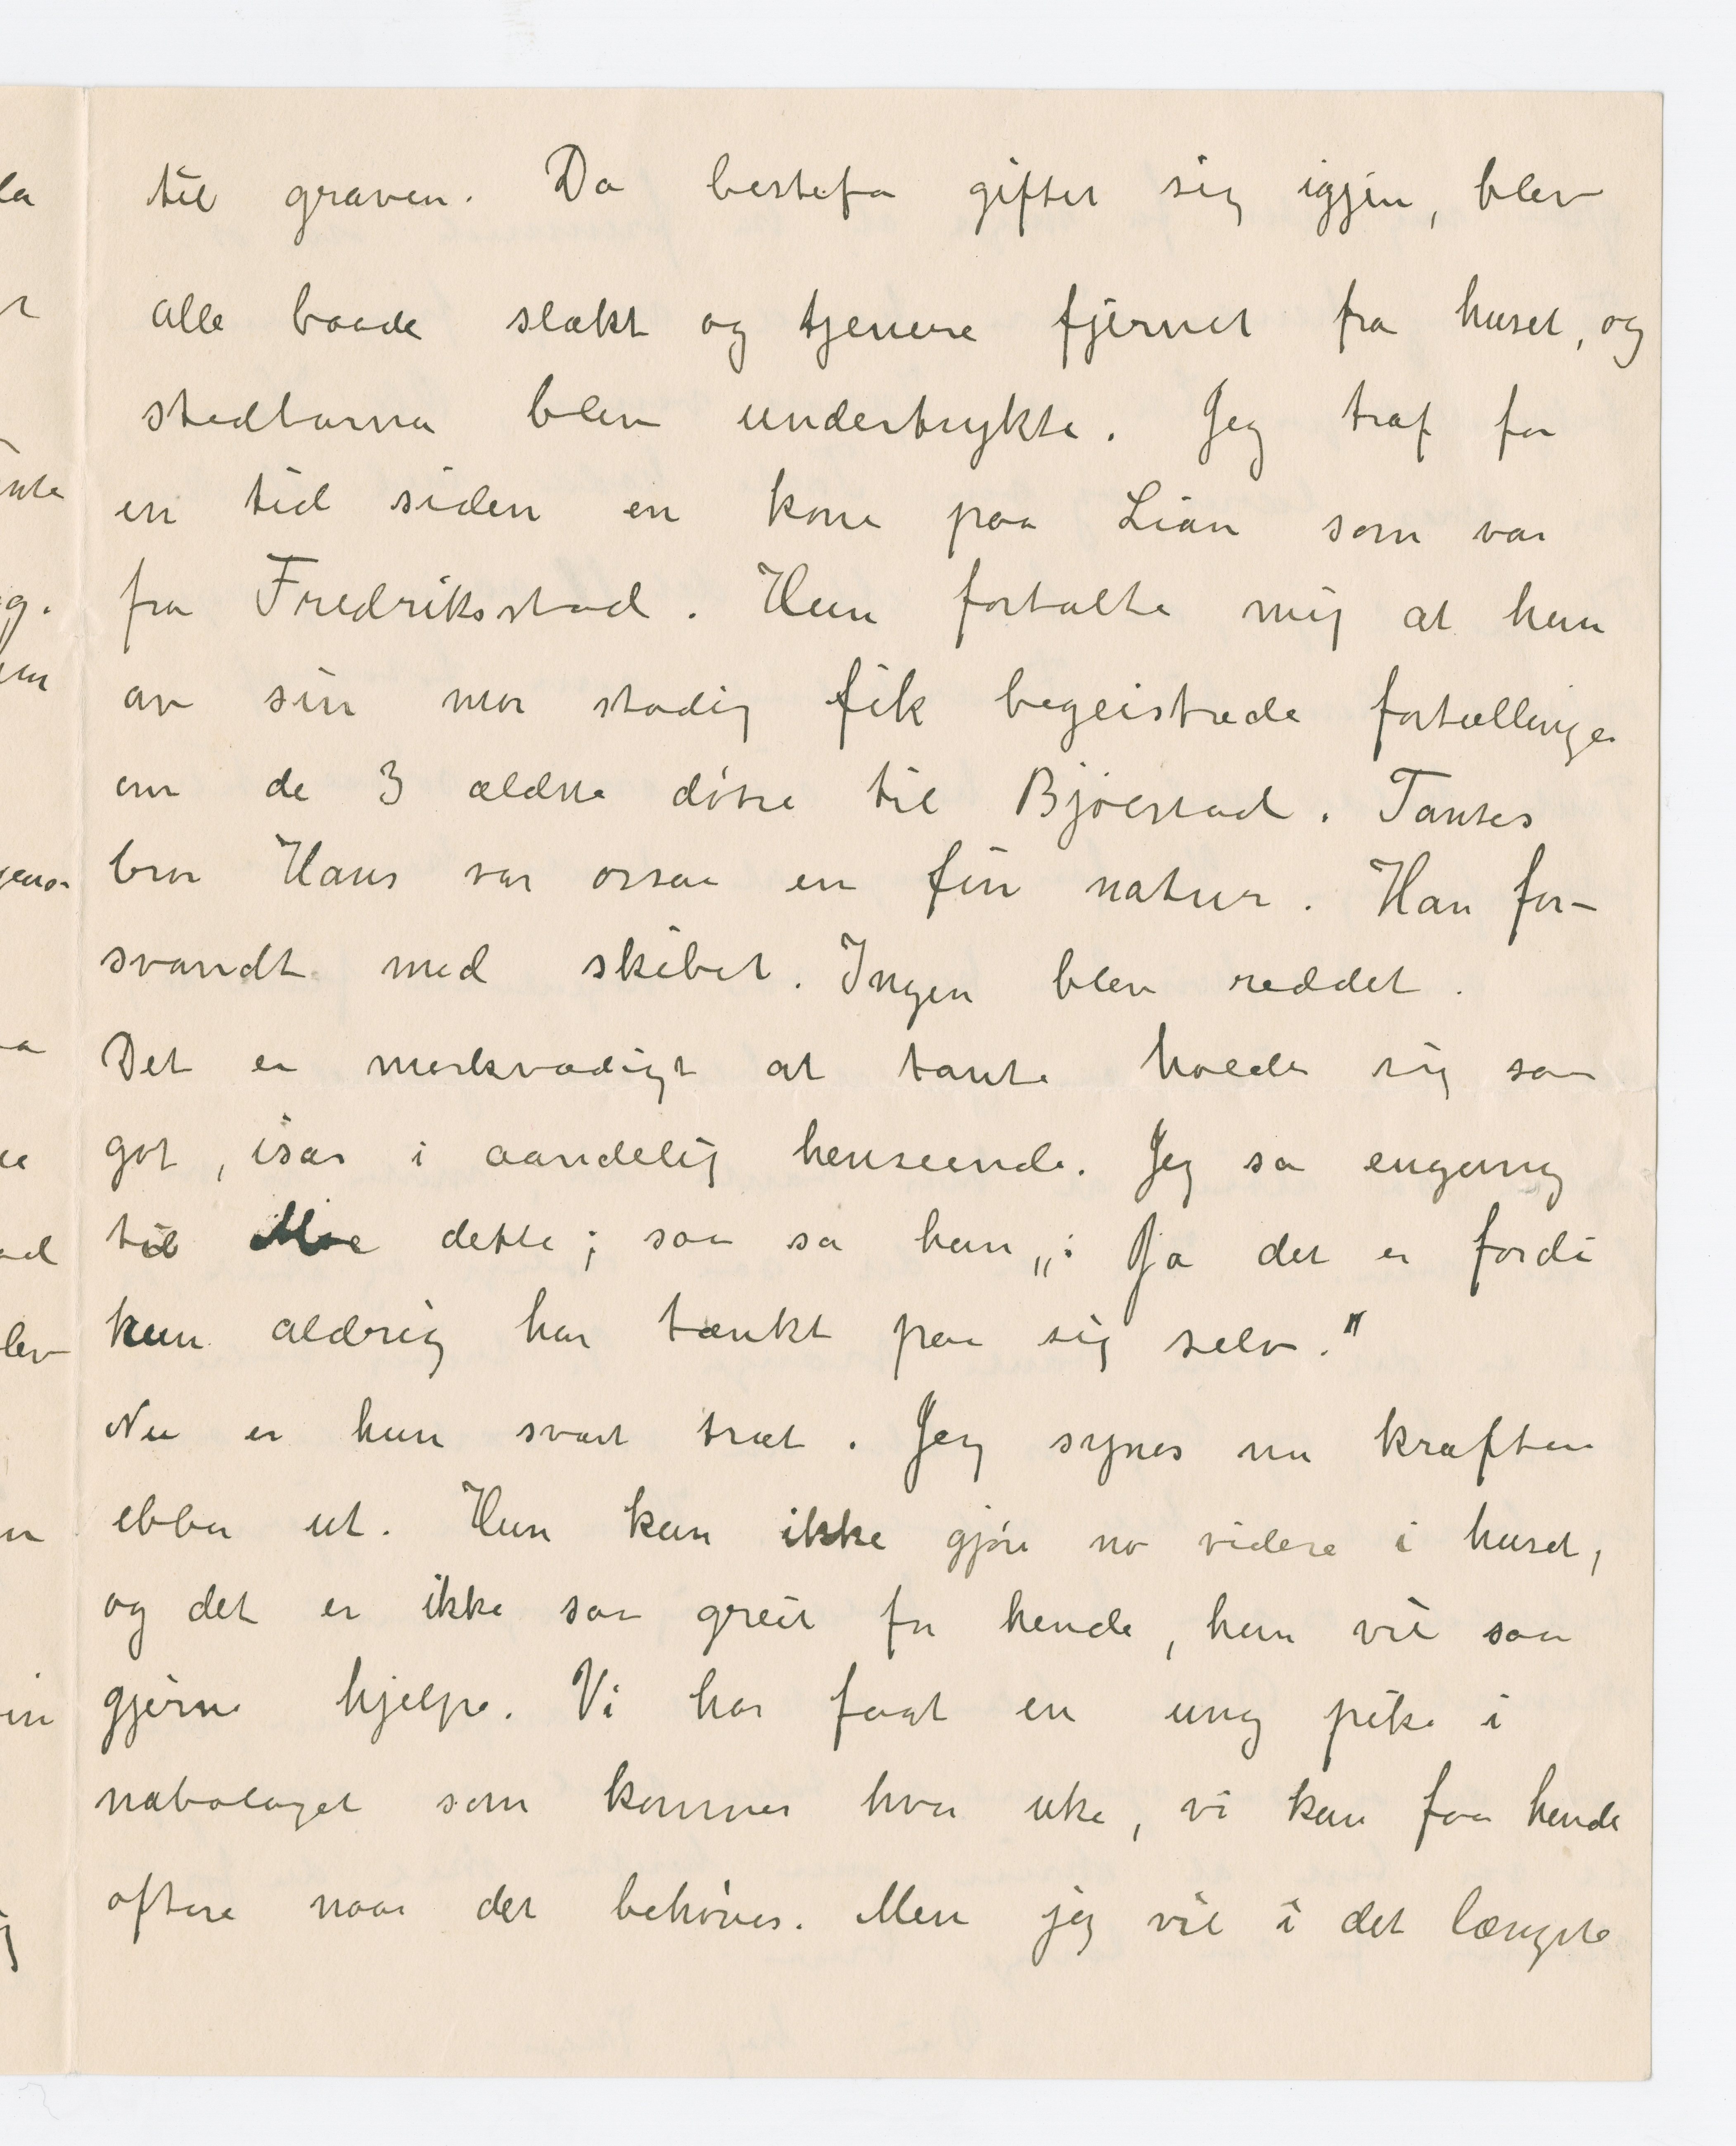 til graven. Da bestefar giftet sig igjen, blev
alle baade slækt og tjenere fjernet fra huset, og
stedbarna blev undertrykte. Jeg traf for
en tid siden en kone paa Lian som var
fra Fredriksstad. Hun fortalte mig at hun
av sin mor stadig fik begeistrede fortællinger
om de 3 ældste døtre til Bjølstad. Tantes
bror Hans var ossaa en fin natur. Han for-
svandt med skibet. Ingen blev reddet.
Det er merkværdigt at tante holder sig saa
got, især i aandelig henseende. Jeg sa engang
til Moe dette; saa sa han „: Ja det er fordi
hun aldrig har tænkt paa sig selv."
Nu er hun svært træt. Jeg synes nu kræftene
ebber ut. Hun kan ikke gjøre no videre i huset,
og det er ikke saa greit for hende, hun vil saa
gjerne hjelpe. Vi har faat en ung pike i
nabolaget som kommer hver uke, vi kan faa hende
oftere naar det behøves. Men jeg vil i det længste